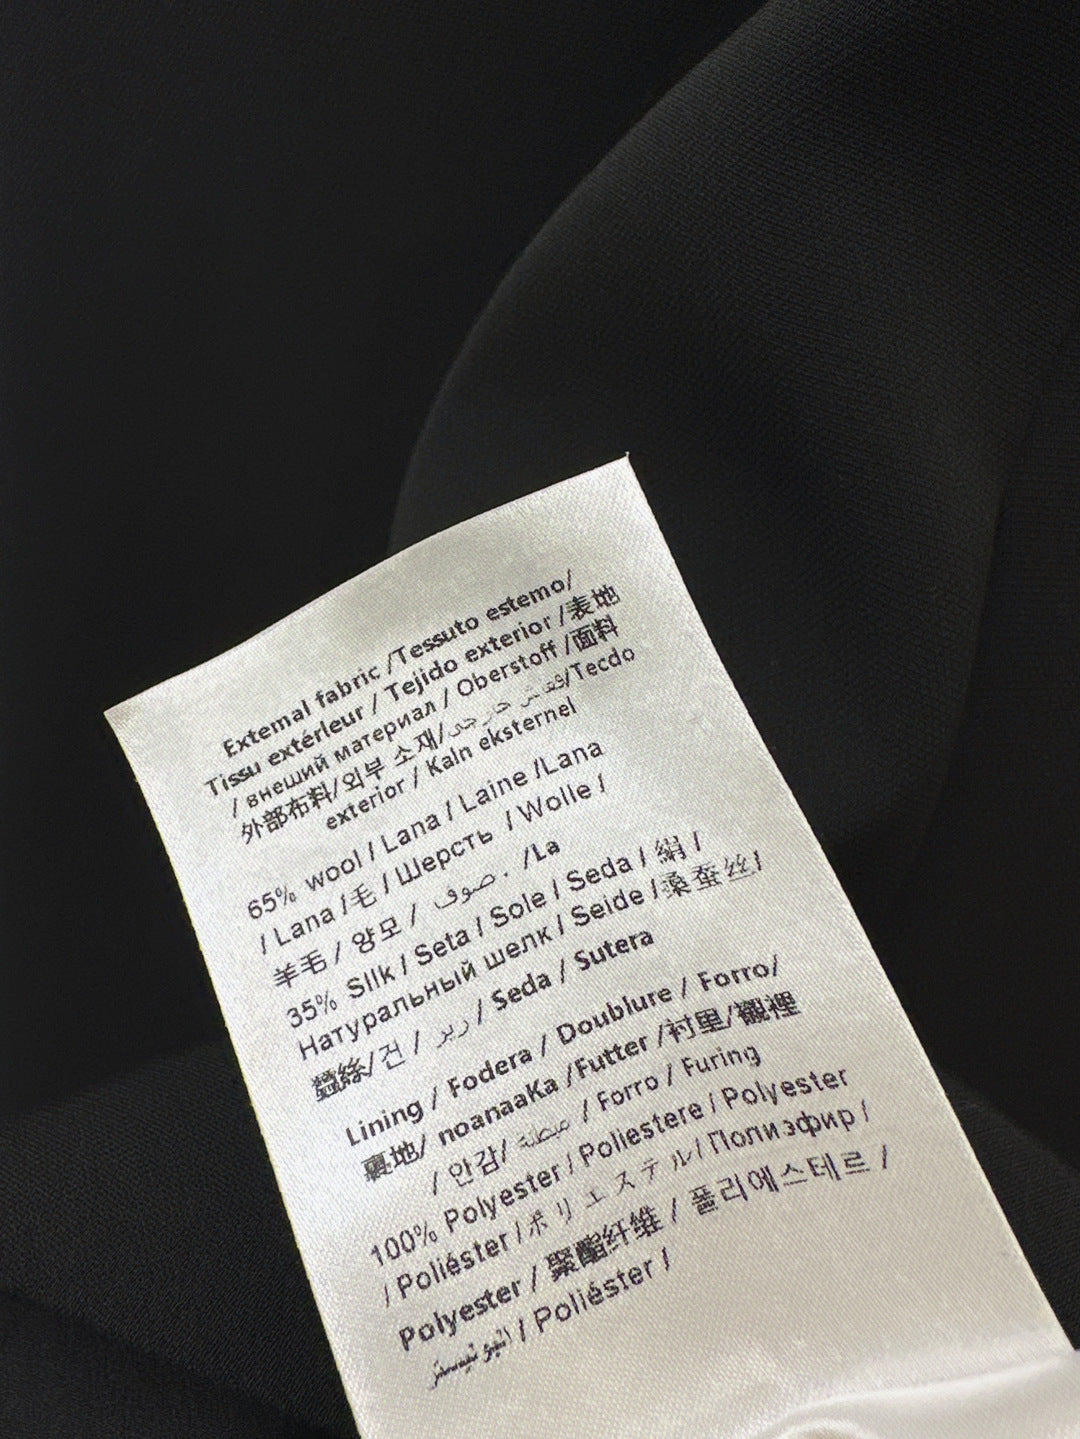 Extemal fabric /Tessuto estemo/
Tissu extérleur / Tejido exterior /表地
/ внеший материал / Oberstoff /面料
外部布料/외부 소재/قماش خارجى/Tecdo
exterior / Kaln eksternel
65% wool / Lana / Laine /Lana
/ Lana /毛 / Шерсть / Wolle /
羊毛 / 양모 / صوف . /La
35% Sllk / Seta / Sole / Seda / 絹 /
Натуральный шелк / Seide /桑蚕丝/
蠶絲/건 / رير / Seda / Sutera
Lining / Fodera / Doublure / Forro/
裏地/ noanaaKa /Futter /衬里/襯裡
/ 안감/ مبطنة / Forro / Furing
100% Polyester / Poliestere / Polyester
/ Poliéster /ポリエステル/ Полиэфир /
Polyester / 聚酯纤维 / 폴리에스테르 /
/ Poliéster /